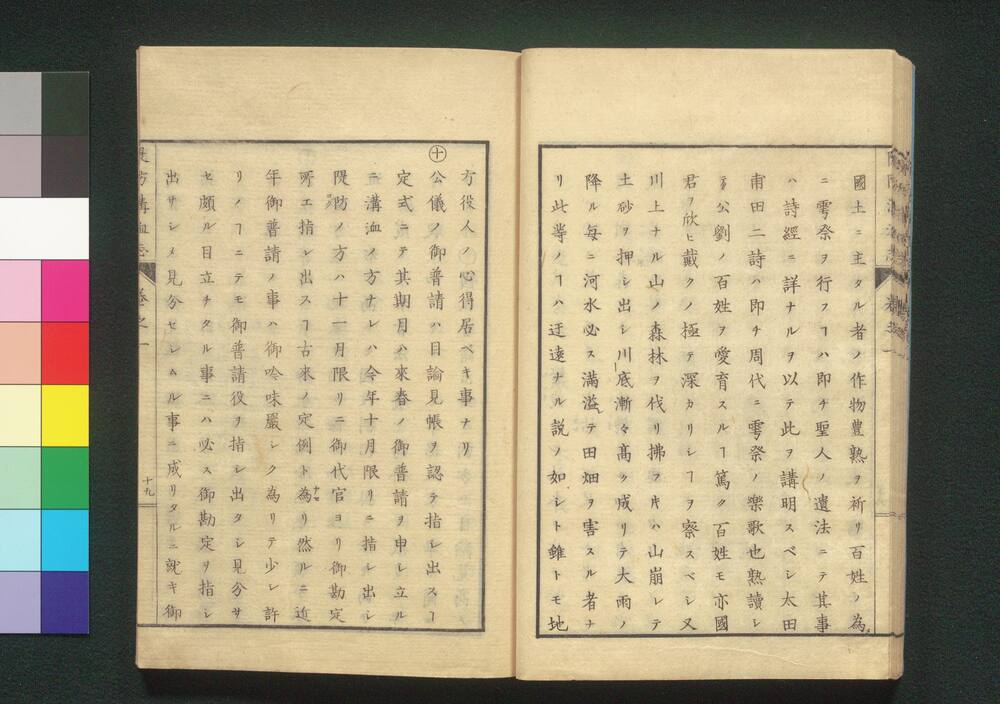 國土ニ主タル者ノ作物豊熟ヲ祈リ百姓ノ為
ニ雩祭ヲ行フヿハ即チ聖人ノ遺法ニテ其事
ハ詩經ニ詳ナルヲ以テ此ヲ講明スベシ太田
甫田二詩ハ即チ周代ニ雩祭ノ樂歌也熟讀シ
テ公劉ノ百姓ヲ愛育スルヿ篤ク百姓モ亦國
君ヲ欣ヒ戴クノ極テ深カリシヿヲ察スベシ又
川上ナル山ノ森林ヲ伐リ拂フ𪜈ハ山崩レテ
土砂ヲ押シ出シ川底漸々高ク成リテ大雨ノ
降ル每ニ河水必ス滿溢テ田畑ヲ害スル者ナ
リ此等ノヿハ迂遠ナル説ノ如シト雖トモ地
方役人ノ心得居ベキ事ナリ
㊉公儀ノ御普請ハ目論見帳ヲ認テ指シ出スヿ
定式ニテ其期月ハ來春ノ御普請ヲ申シ立ル
ニ溝洫ノ方ナレハ今年十月限リニ指シ出シ
隄防ノ方ハ十一月限リニ御代官ヨリ御勘定
所エ指シ出スヿ古來ノ定例ト為リ然ルニ近
年御普請ノ事ハ御吟味嚴シク為リテ少シ許
リノヿニテモ御普請役ヲ指シ出タシ見分サ
セ頗ル目立チタル事ニハ必ス御勘定ヲ指シ
出サシメ見分セシムル事ニ成リタルニ就キ御
卷之一
十九